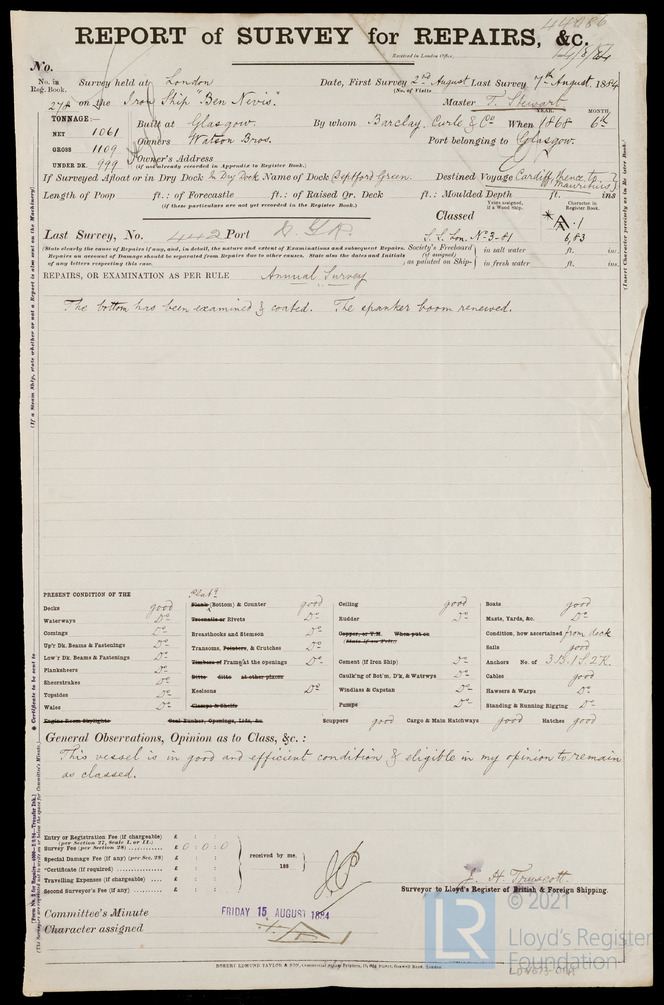 44086
REPORT of SURVEY for REPAIRS, &c.
Received in London Office,
No.
No. in Reg. Book. Survey held at London Date, First Survey 2nd August Last Survey 7th August 1884
(No. of Visits
274 on the Iron Ship "Ben Nevis". Master T. Stewart
TONNAGE:— YEAR. MONTH.
NET 1061 Built at Glasgow. By whom Barclay, Curle & Co When 1868 6th
GROSS 1109 Owners Watson Bros. Port belonging to Glasgow.
UNDER DK. 999 Owner's Address
(if not already recorded in Appendix to Register Book.)
If Surveyed Afloat or in Dry Dock In Dry Dock Name of Dock Deptford Green. Destined Voyage Cardiff, thence to Mauritius
Length of Poop ft.: of Forecastle ft.: of Raised Qr. Deck ft.: Moulded Depth ft. ins
(if these particulars are not yet recorded in the Register Book.)
Years assigned, if a Wood Ship. Character in Register Book.
Last Survey, No. 442 Port Classed A.1
S.S. Lon. No 3-81 6,83
(State clearly the cause of Repairs if any, and, in detail, the nature and extent of Examinations and subsequent Repairs.
Repairs on account of Damage should be separated from Repairs due to other causes. State also the dates and Initials
of any letters respecting this case.
Society's Freeboard (if assigned) as painted on Ship— in salt water ft. in:
in fresh water ft. ins.
REPAIRS, OR EXAMINATION AS PER RULE Annual Survey
The bottom has been examined & coated. The spanker boom renewed.
PRESENT CONDITION OF THE
Decks good
Waterways Do
Comings Do
Up'r Dk. Beams & Fastenings Do
Low'r Dk. Beams & Fastenings Do
Planksheers Do
Sheerstrakes Do
Topsides Do
Wales Do
Engine Room Skylights
Plats
Plank (Bottom) & Counter good
Treenails or Rivets Do
Breasthooks and Stemson Do
Transoms, Pointers, & Crutches Do
Timbers of Frame at the openings Do
Ditto ditto at other places
Keelsons Do
Clamps & Shelfs
Coal Bunker, Openings, Lids, &c.
Ceiling good
Rudder Do
Copper, or Y.M. When put on
(State if on Felt)
Cement (if Iron Ship) Do
Caulk'ng of Bot'm, D'k, & Watrwys Do
Windlass & Capstan Do
Pumps Do
Scuppers good Cargo & Main Hatchways good Hatches good
Boats good
Masts, Yards, &c. Do
Condition, how ascertained from deck
Sails good
Anchors No. of 3 B. 1 S. 2 K.
Cables good
Hawsers & Warps Do
Standing & Running Rigging Do
General Observations, Opinion as to Class, &c.:
This vessel is in good and efficient condition & eligible in my opinion to remain
as classed.
Entry or Registration Fee (if chargeable) £ : :
(per Section 27, Scale I. or II.)
Survey Fee (per Section 28) £ 0 : 0 : 0
Special Damage Fee (if any) (per Sec. 28) £ : :
*Certificate (if required) £ : :
Travelling Expense (if chargeable) £ : :
Second Surveyor's Fee (if any) £ : :
received by me,
188
J. H. Truscott
Surveyor to Lloyd's Register of British & Foreign Shipping.
Committee's Minute FRIDAY 15 AUGUST 1884
Character assigned
ROBERT EDMUND TAYLOR & SON, Commercial Steam Printers, London
(If a Steam Ship, state whether or not a Report is also sent on the Machinery)
* Certificate to be sent to
(Insert Character precisely as in the Register Book.)
© 2021
LR
Lloyd's Register
Foundation